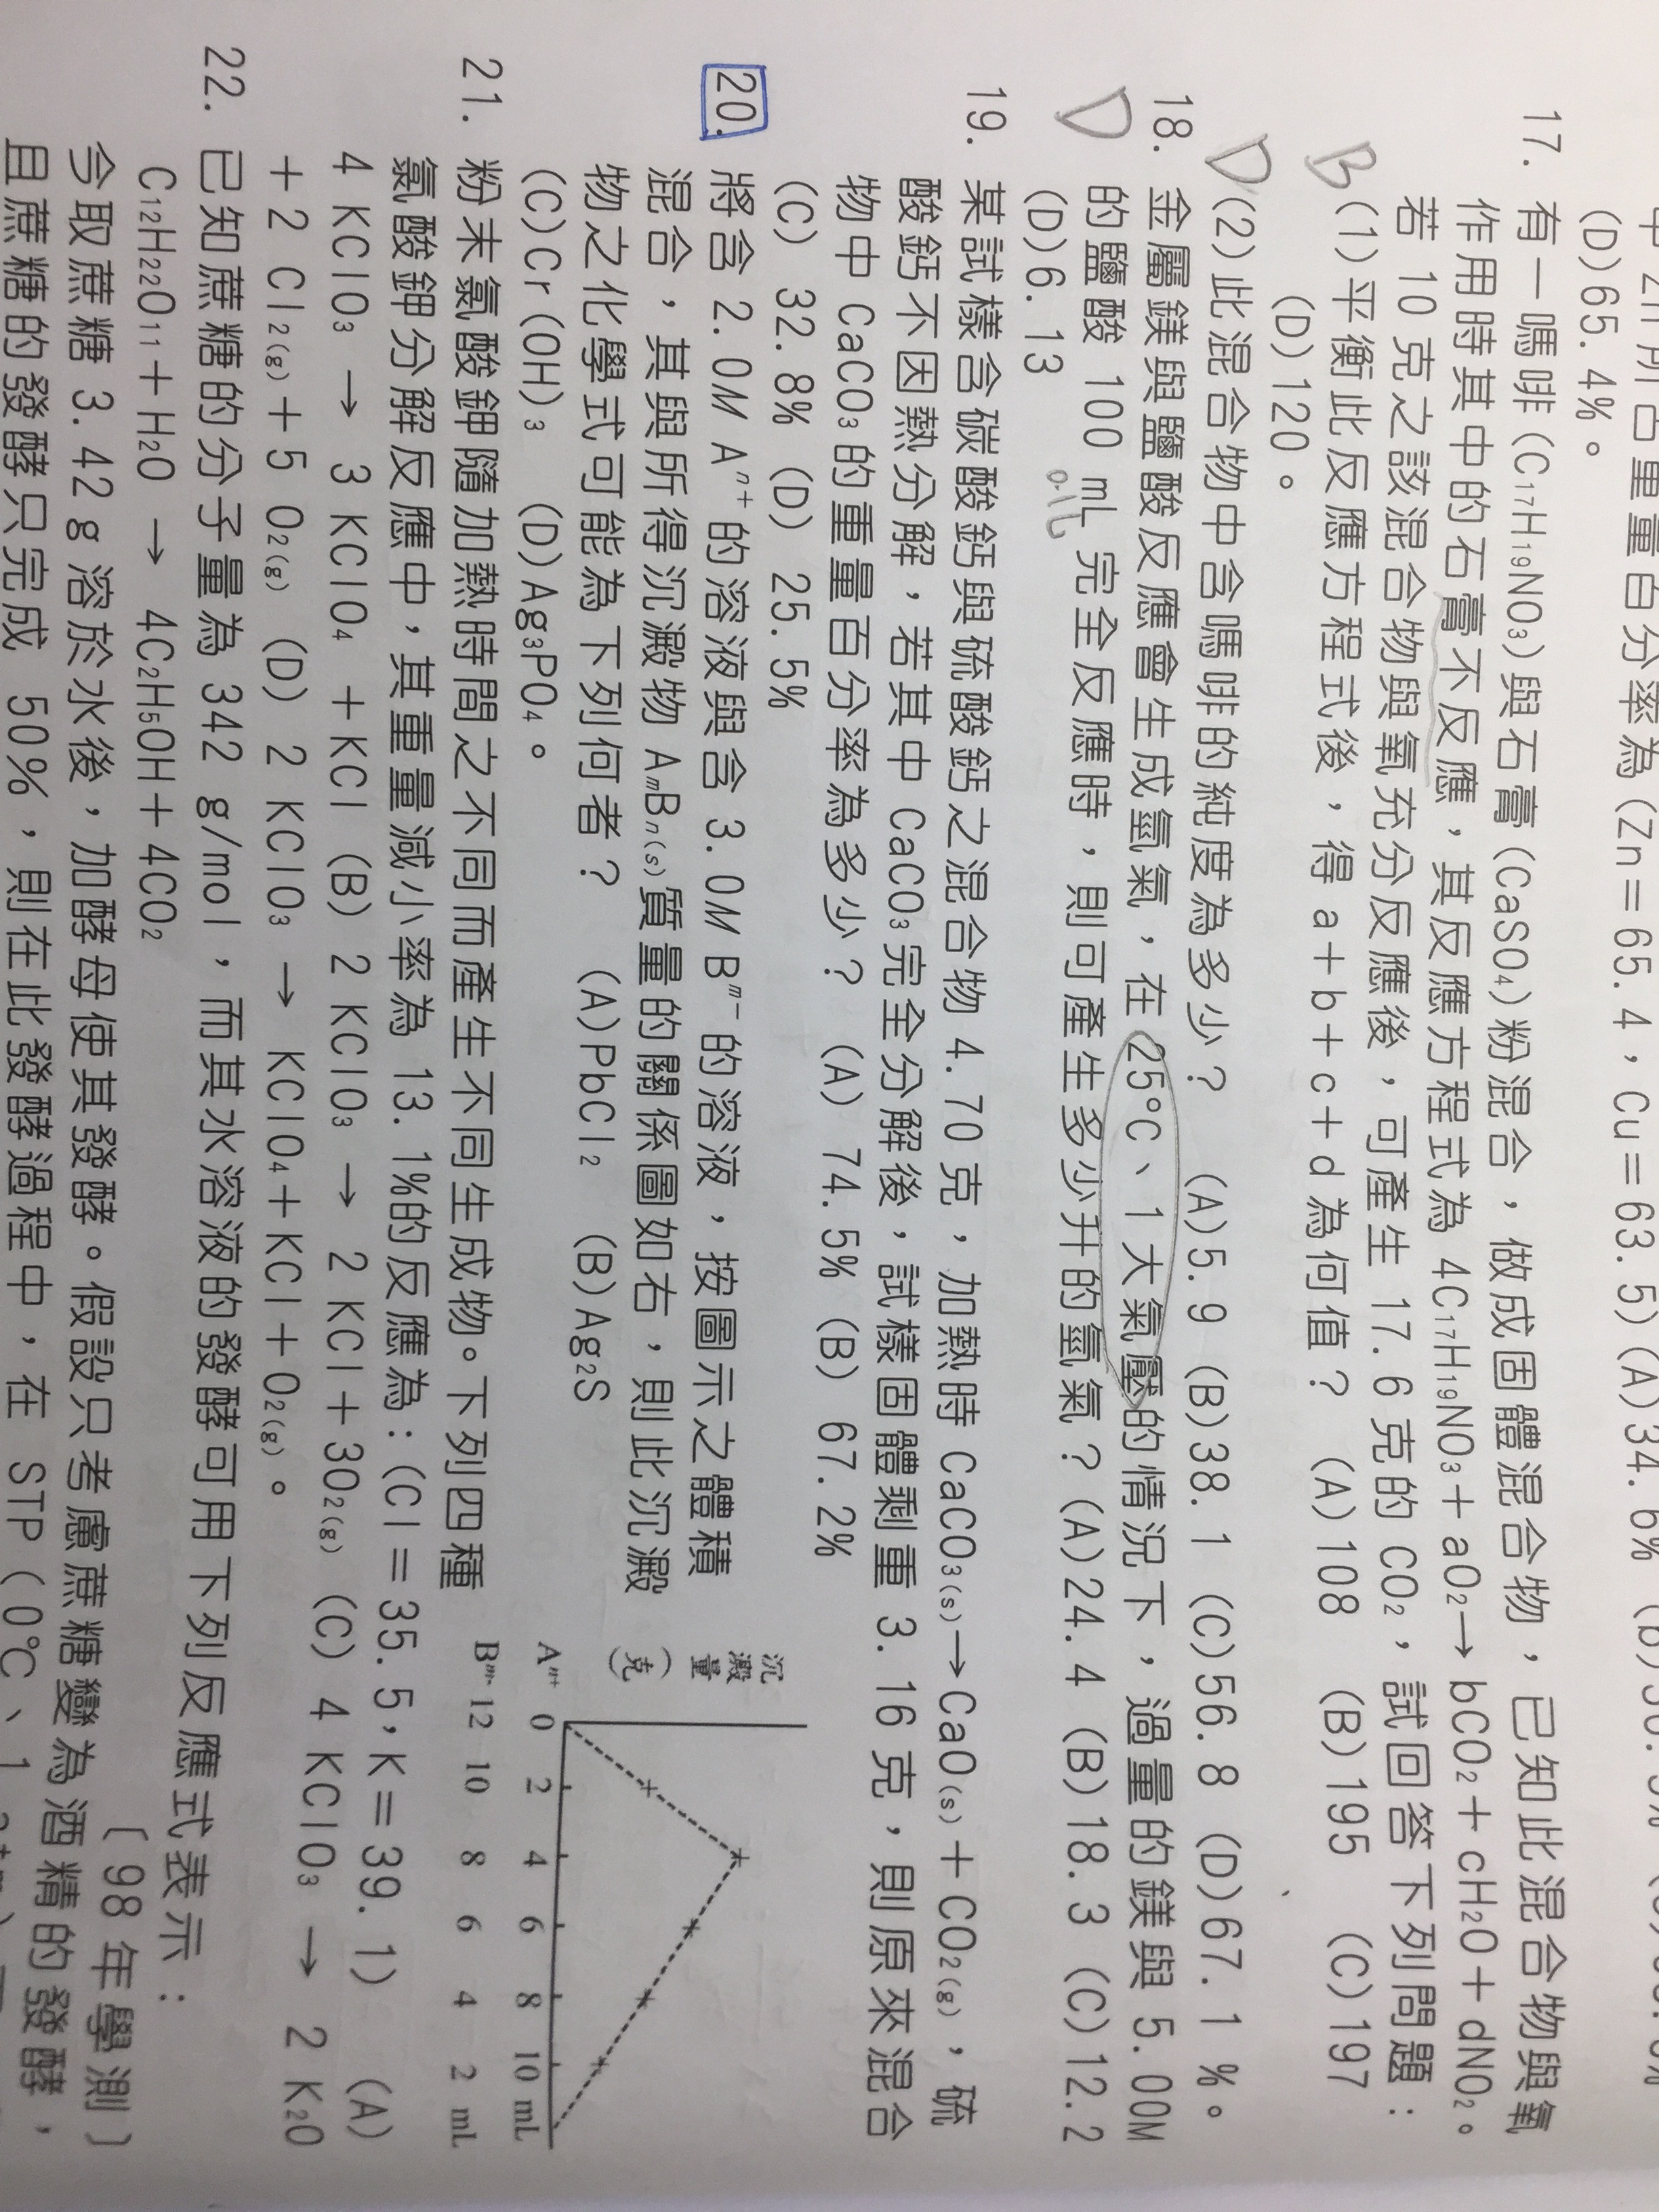 (D)65.4%。
17. 有一嗎啡(C₁₇H₁₉NO₃)與石膏(CaSO₄)粉混合，做成固體混合物，已知此混合物與氧
作用時其中的石膏不反應，其反應方程式為 4C₁₇H₁₉NO₃＋aO₂→bCO₂＋cH₂O＋dNO₂。
若 10 克之該混合物與氧充分反應後，可產生 17.6 克的 CO₂，試回答下列問題：
B (1)平衡此反應方程式後，得 a＋b＋c＋d 為何值？ (A)108 (B)195 (C)197
(D)120。
D (2)此混合物中含嗎啡的純度為多少？ (A)5.9 (B)38.1 (C)56.8 (D)67.1 %。
18. 金屬鎂與鹽酸反應會生成氫氣，在 25°C、1 大氣壓的情況下，過量的鎂與 5.00M
D 的鹽酸 100 mL 完全反應時，則可產生多少升的氫氣？(A)24.4 (B)18.3 (C)12.2
0.1L
(D)6.13
19. 某試樣含碳酸鈣與硫酸鈣之混合物 4.70 克，加熱時 CaCO₃(s)→CaO(s)＋CO₂(g)，硫
酸鈣不因熱分解，若其中 CaCO₃完全分解後，試樣固體剩重 3.16 克，則原來混合
物中 CaCO₃的重量百分率為多少？ (A) 74.5% (B) 67.2%
(C) 32.8% (D) 25.5%
20. 將含 2.0M Aⁿ⁺的溶液與含 3.0M Bᵐ⁻的溶液，按圖示之體積
混合，其與所得沉澱物 AₘBₙ(s)質量的關係圖如右，則此沉澱
物之化學式可能為下列何者？ (A)PbCl₂ (B)Ag₂S
(C)Cr(OH)₃ (D)Ag₃PO₄。
沉澱量（克）
Aⁿ⁺ 0 2 4 6 8 10 mL
Bᵐ⁻ 12 10 8 6 4 2 mL
21. 粉末氯酸鉀隨加熱時間之不同而產生不同生成物。下列四種
氯酸鉀分解反應中，其重量減小率為 13.1%的反應為：(Cl＝35.5，K＝39.1) (A)
4 KClO₃ → 3 KClO₄ ＋KCl (B) 2 KClO₃ → 2 KCl＋3O₂(g) (C) 4 KClO₃ → 2 K₂O
＋2 Cl₂(g)＋5 O₂(g) (D) 2 KClO₃ → KClO₄＋KCl＋O₂(g)。
22. 已知蔗糖的分子量為 342 g/mol，而其水溶液的發酵可用下列反應式表示：
C₁₂H₂₂O₁₁＋H₂O → 4C₂H₅OH＋4CO₂ 〔98 年學測〕
今取蔗糖 3.42 g 溶於水後，加酵母使其發酵。假設只考慮蔗糖變為酒精的發酵，
且蔗糖的發酵只完成 50%，則在此發酵過程中，在 STP (0℃、1